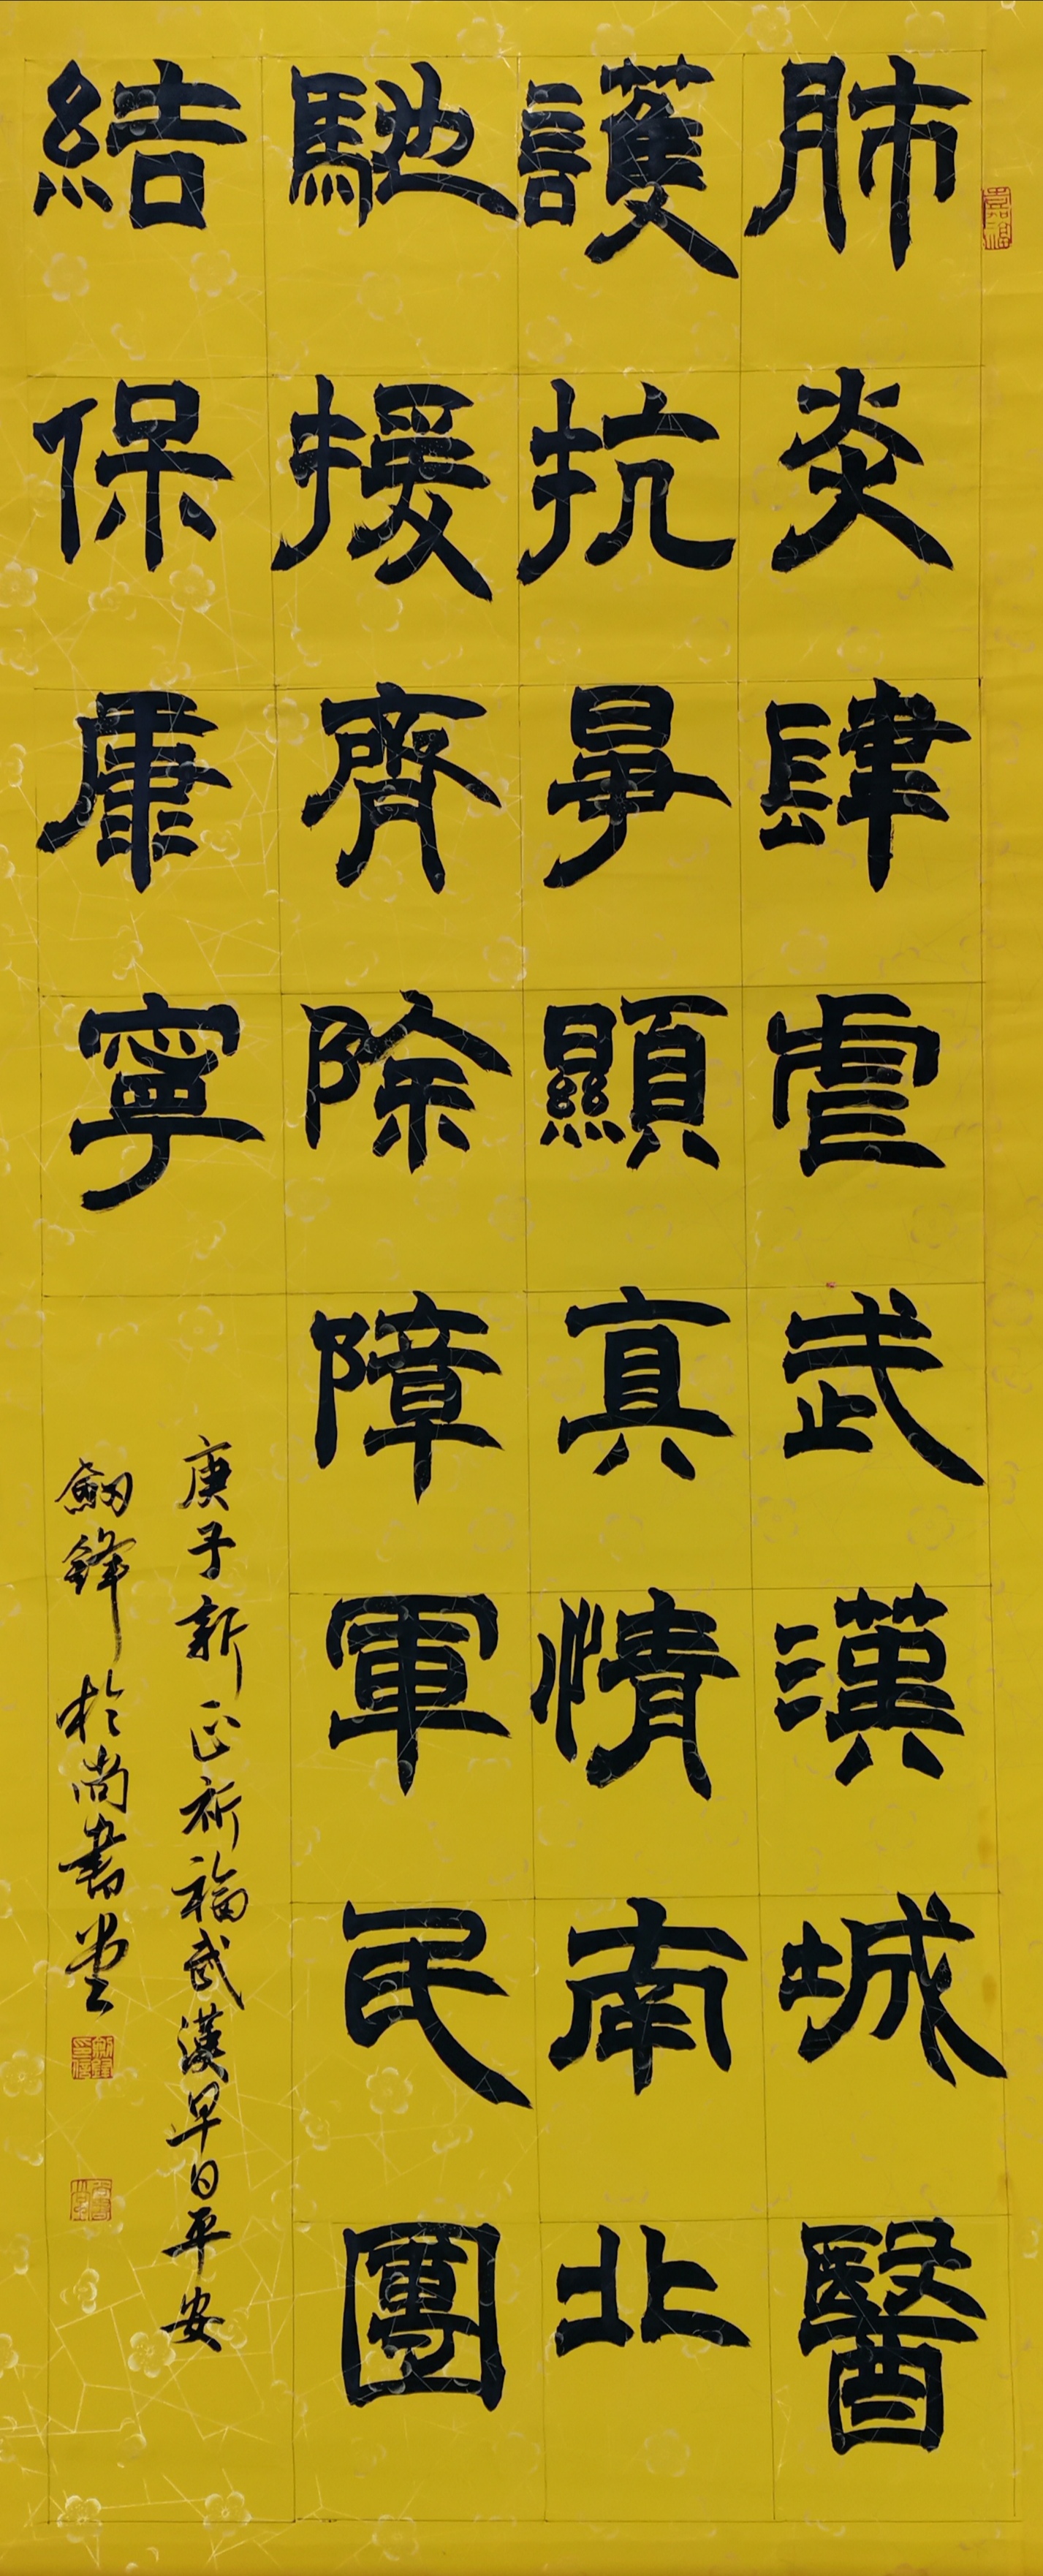 肺炎肆虐武漢城醫
護抗㝵顯真情南北
馳援齊除障軍民團
結保康寧
庚子新正祈福武漢早日平安
劔鋒於尚書堂